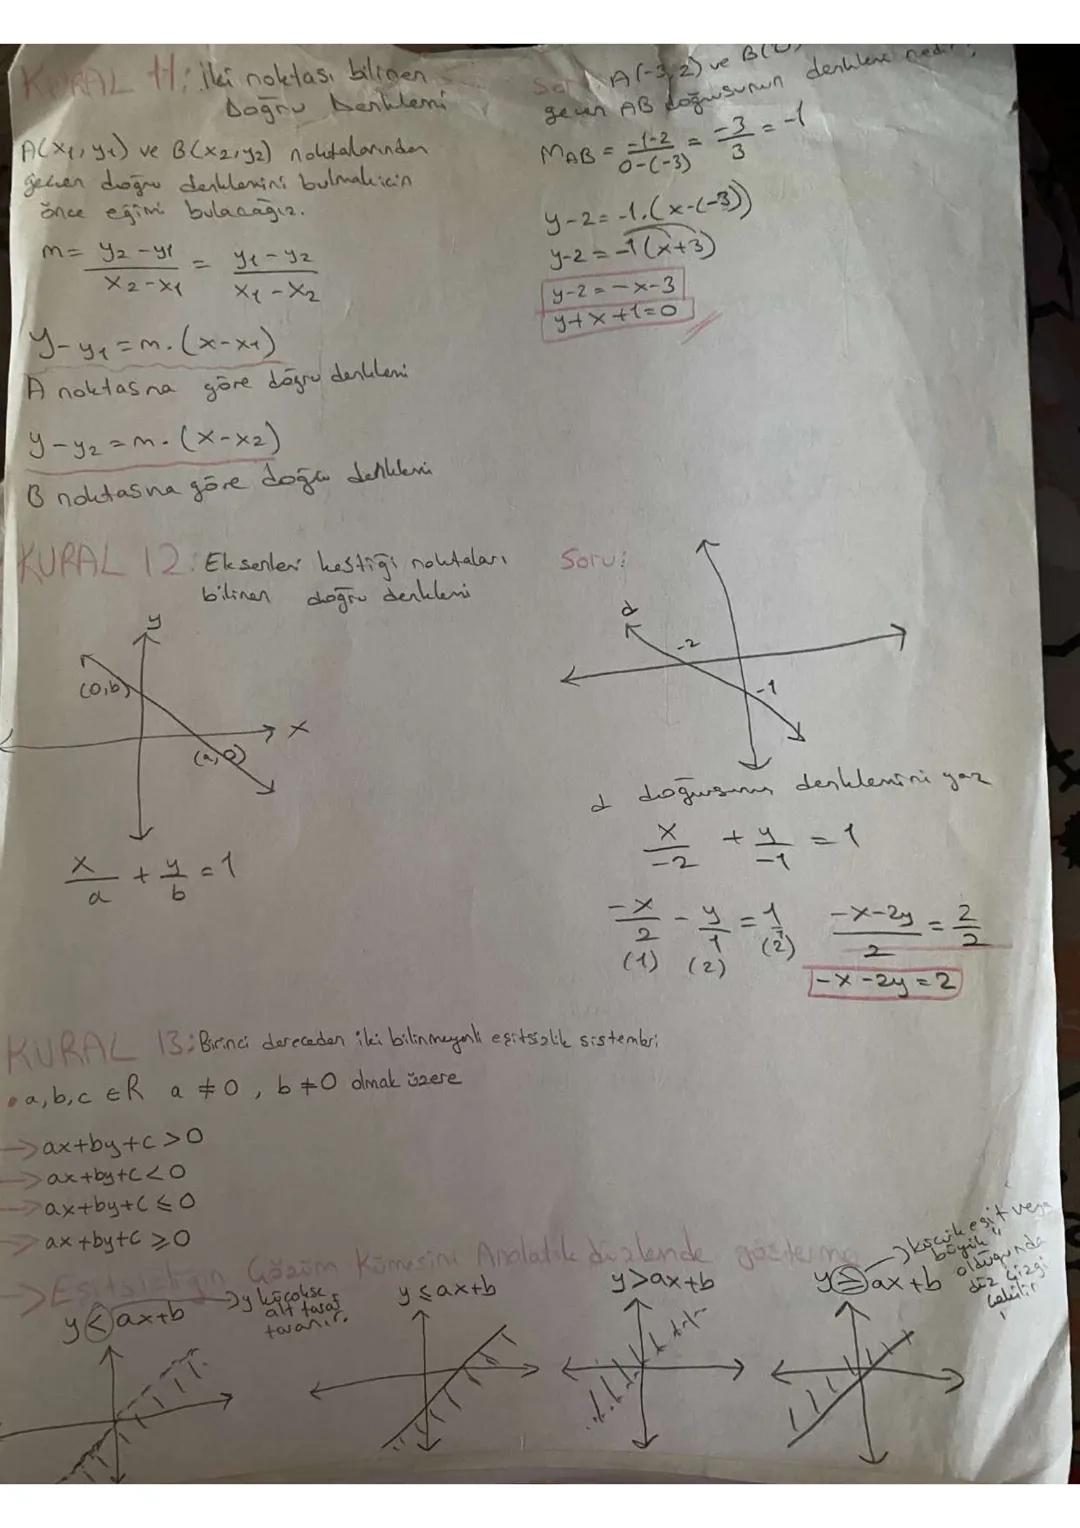 KURAL 11: İki noktası bilinen
Doğru Denklemi
A(x₁, y₁) ve B(x₂, y₂) noktalarından
geçen doğru denklemini bulmak için
önce eğimi bulacağız.
m = y₂ - y₁ / x₂ - x₁ = y₁ - y₂ / x₁ - x₂
y - y₁ = m · (x - x₁)
A noktasına göre doğru denklemi
y - y₂ = m · (x - x₂)
B noktasına göre doğru denklemi
A(-3, 2) ve B(0,
geçen AB doğrusunun denklemi nedir
MAB = -1-2 / 0-(-3) = -3 / 3 = -1
y - 2 = -1 · (x - (-3))
y - 2 = -1 (x + 3)
y - 2 = -x - 3
y + x + 1 = 0
KURAL 12: Eksenleri kestiği noktaları
bilinen doğru denklemi
y
(0, b)
x
(a, 0)
x/a + y/b = 1
Soru:
d
-2
-1
d doğrusunun denklemini yaz
x/-2 + y/-1 = 1
-x/2 - y/1 = 1/1
(1) (2) (2)
-x-2y / 2 = 2/2
-x - 2y = 2
KURAL 13: Birinci dereceden iki bilinmeyenli eşitsizlik sistemleri
• a, b, c ∈ R a ≠ 0, b ≠ 0 olmak üzere
→ ax + by + c > 0
→ ax + by + c < 0
→ ax + by + c ≤ 0
→ ax + by + c ≥ 0
→ Eşitsizliğin Çözüm Kümesini Analatik düzlemde gösterme
y < ax + b
→ y küçükse
alt taraf
taranır.
y ≤ ax + b
y > ax + b
y ≥ ax + b
→ küçük eşit veya
büyük "
olduğunda
düz çizgi
çekilir